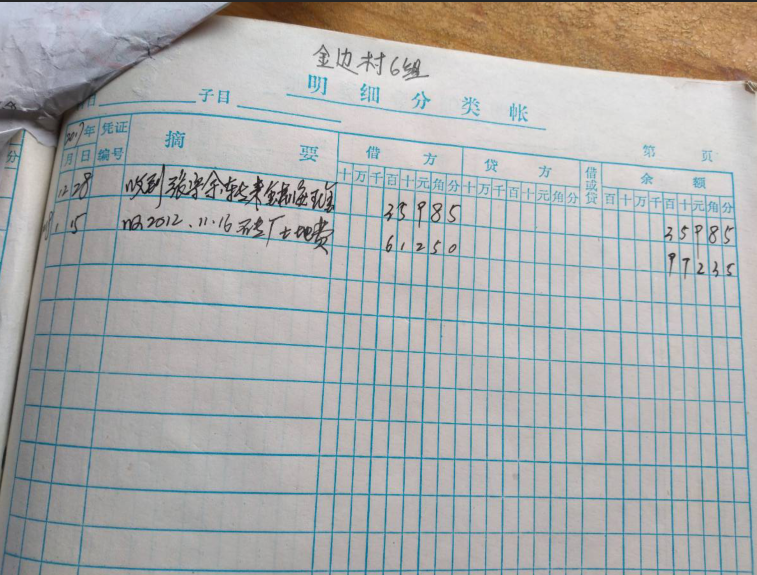 金边村6组
明细分类帐
目 子目
第 页
年 凭证 摘要 借方 贷方 借或贷 余额
月 日 编号 十万千百十元角分 十万千百十元角分 百十万千百十元角分
12 28 收到 35985 35985
1 5 收2012.11.16 厂土地费 61250 97235
分